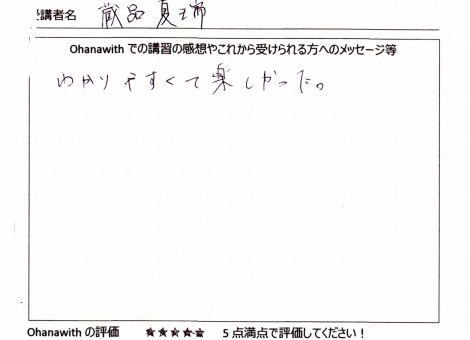 受講者名 蔵品 夏瑞
Ohanawith での講習の感想やこれから受けられる方へのメッセージ等
わかりやすくて楽しかった。
Ohanawith の評価 ★★★★★ 5 点満点で評価してください!